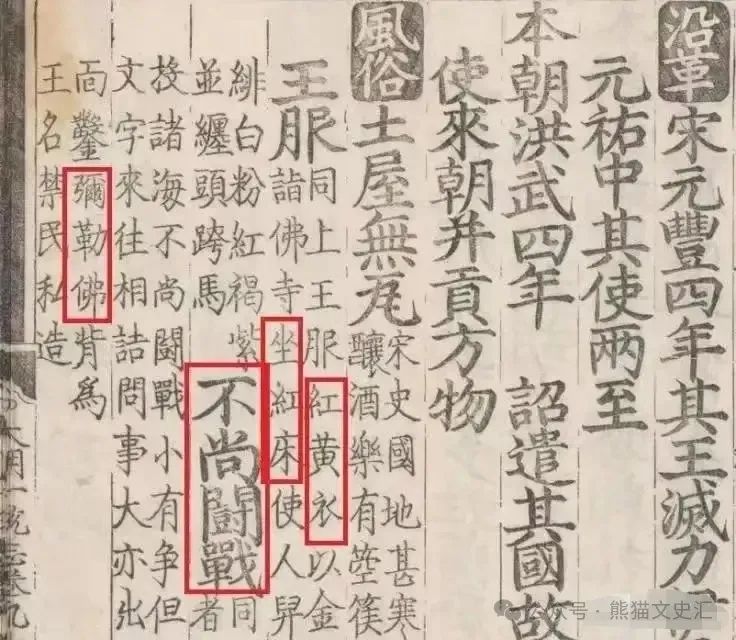 沿革 宋元豐四年其王滅力
元祐中其使两至
本朝洪武四年 詔遣其國故
使來朝并貢方物
風俗 土屋無瓦
宋史國地甚寒
釀酒樂有箜篌
王服
同上王服紅黃衣以金
詣佛寺坐紅床使人舁
緋白粉紅褐紫
並纏頭跨馬
不尚闘戰
同
者
投諸海不尚闘戰小有争但
文字來往相詰問事大亦出
面鑿彌勒佛背爲
王名禁民私造
大明一統志卷九
公众号 · 熊猫文史汇